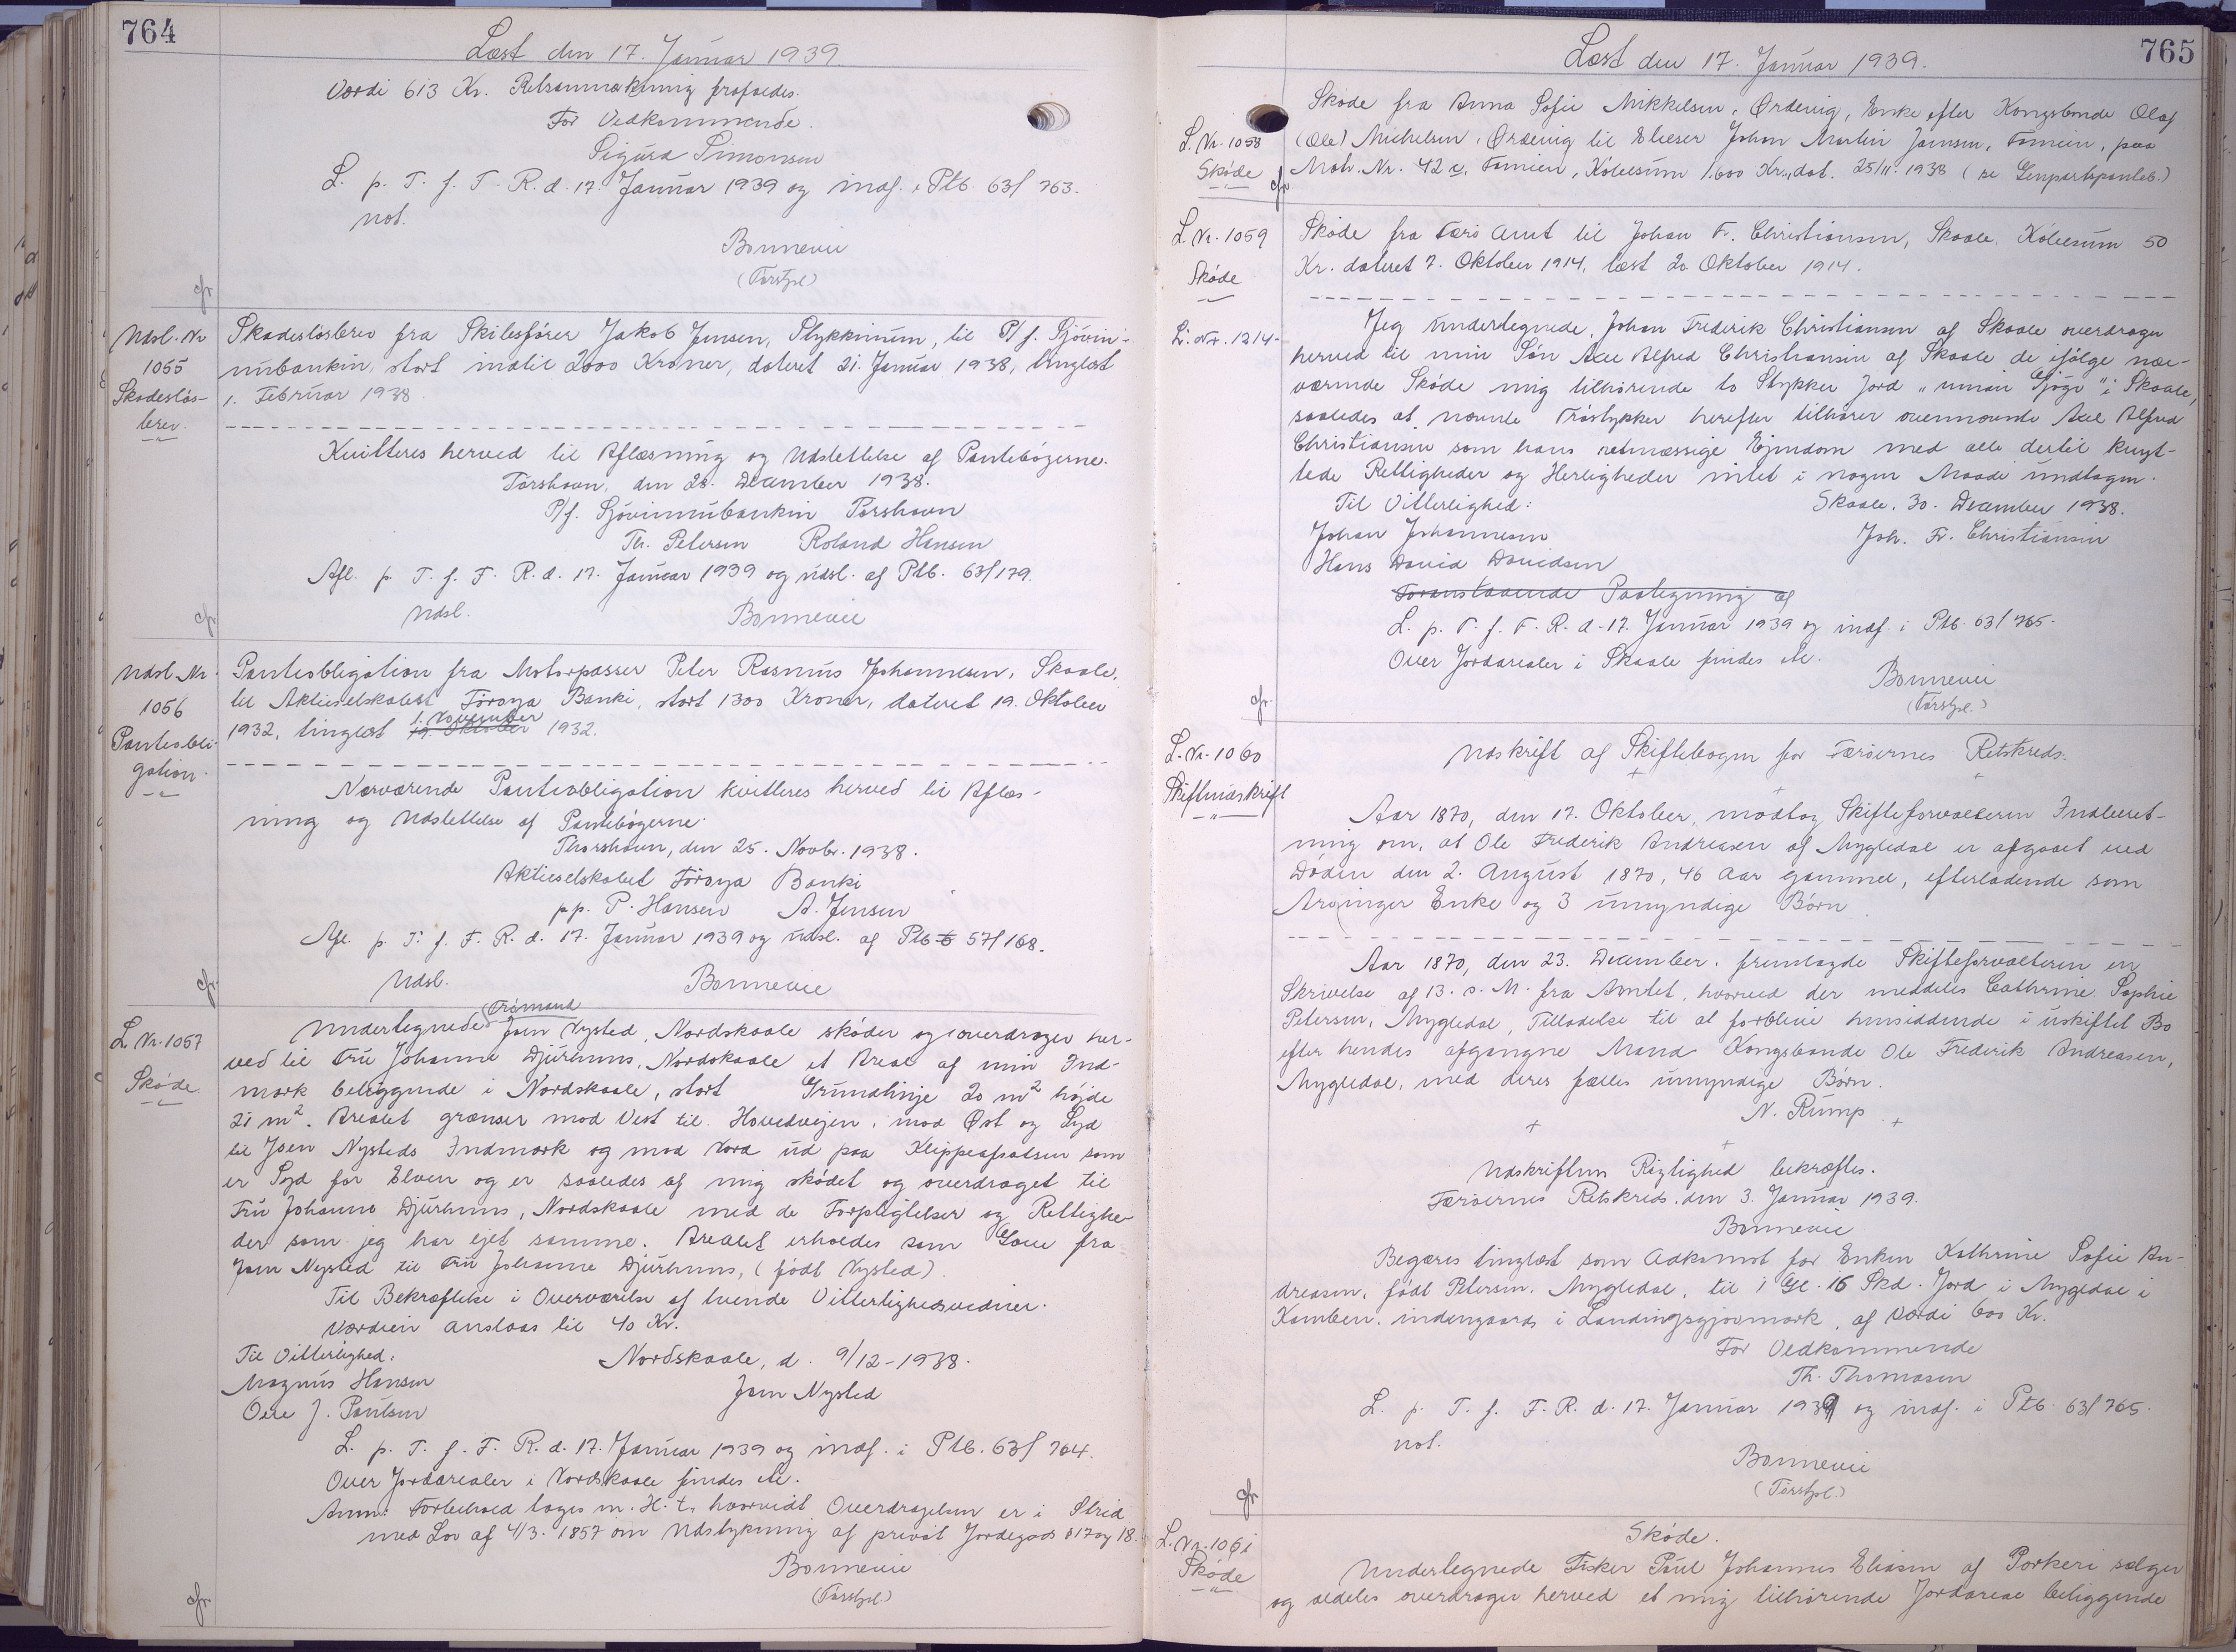 764
Læst den 17. Januar 1939.
Værdi 613 Kr. Retsanmærkning frafaldes.
For Vedkommende.
Sigurd Simonsen
L. p. T. f. F. R. d. 17. Januar 1939 og indf. i Ptb. 63/763.
not.
Bonnevie
(Torshpl.)
cfr.
Udsl. Nr.
1055
Skadesløs-
brev.
Skadesløsbrev fra Skibsfører Jakob Jensen, Stykkinum, til P/f. Sjóvin-
nubankin, stort indtil 2000 Kroner, dateret 21. Januar 1938, tinglæst
1. Februar 1938.
Kvitteres herved til Aflæsning og Udslettelse af Pantebøgerne.
Tórshavn, den 28. December 1938.
P/f. Sjóvinnubankin Tórshavn
Th. Petersen Roland Hansen
Afl. p. T. f. F. R. d. 17. Januar 1939 og udsl. af Ptb. 63/179.
Udsl. Bonnevie
cfr.
Udsl. Nr.
1056
Panteobli-
gation.
Panteobligation fra Motorpasser Peter Rasmus Johannesen, Skaale,
til Aktieselskabet Føroya Banki, stort 1300 Kroner, dateret 19. Oktober
1932, tinglæst 19. Oktober 1. November 1932.
Nærværende Panteobligation kvitteres herved til Aflæs-
ning og Udslettelse af Pantebøgerne.
Thorshavn, den 25. Novbr. 1938.
Aktieselskabet Føroya Banki
pp. P. Hansen A. Jensen
Afl. p. T. f. F. R. d. 17. Januar 1939 og udsl. af Ptb. 57/168.
Udsl. Bonnevie
cfr.
L. Nr. 1057
Skøde
Undertegnede Trømand Joen Nysted, Nordskaale skøder og overdrager her-
ved til Fru Johanne Djurhuus, Nordskaale et Areal af min Ind-
mark beliggende i Nordskaale, stort Grundlinje 20 m² højde
21 m². Arealet grænser mod Vest til Hovedvejen, mod Øst og Syd
til Joen Nysteds Indmark og mod Nord ud paa Klippeafsatsen som
er Syd for Elven og er saaledes af mig skødet og overdraget til
Fru Johanne Djurhuus, Nordskaale med de Forpligtelser og Rettighe-
der som jeg har ejet samme. Arealet erholdes som Gave fra
Joen Nysted til Fru Johanne Djurhuus, (født Nysted)
Til Bekræftelse i Overværelse af tvende Vitterlighedsvidner.
Værdien anslaas til 40 Kr.
Til Vitterlighed: Nordskaale, d. 9/12-1938.
Magnus Hansen Joen Nysted
Ole J. Poulsen
L. p. T. f. F. R. d. 17. Januar 1939 og indf. i Ptb. 63/764.
Over Jordarealer i Nordskaale findes etc.
Anm: Forbehold tages m. H. t. hvorvidt Overdragelsen er i Strid
med Lov af 4/3. 1857 om Udstykning af privat Jordegods § 17 og 18.
Bonnevie
(Torshpl.)
cfr.
765
Læst den 17. Januar 1939.
L. Nr. 1058
Skøde
cfr
Skøde fra Anna Sofie Mikkelsen, Ørdevig, Enke efter Kongsbonde Olaf
(Ole) Michelsen, Ørdevig til Elieser Johan Martin Jensen, Famien, paa
Matr. Nr. 42 c, Famien, Købesum 1.600 Kr., dat. 25/11. 1938 (se Genpartspanteb.)
L. Nr. 1059
Skøde
Skøde fra Færø Amt til Johan Fr. Christiansen, Skaale. Købesum 50
Kr. dateret 7. Oktober 1914, læst 20 Oktober 1914.
L. Nr. 1214-
Jeg undertegnede, Johan Frederik Christiansen af Skaale overdrager
herved til min Søn Axel Alfred Christiansen af Skaale de ifølge nær-
værende Skøde mig tilhørende to Stykker Jord „ " i Skaale,
saaledes at nævnte Trøstykker herefter tilhører ovennævnte Axel Alfred
Christiansen som hans retmæssige Ejendom med alle dertil knyt-
tede Rettigheder og Herligheder intet i nogen Maade undtagen.
Til Vitterlighed: Skaale, 30. December 1938.
Johan Johannesen Joh. Fr. Christiansen
Hans David Davidsen
Foranstaaende Paategning af
L. p. T. f. F. R. d. 17. Januar 1939 og indf. i Ptb. 63/765.
Over Jordarealer i Skaale findes etc.
Bonnevie
(Torshpl.)
cfr.
L. Nr. 1060
Skifteudskrift
Udskrift af Skiftebogen for Færøernes Retskreds.
Aar 1870, den 17. Oktober, modtog Skifteforvalteren Indberet-
ning om, at Ole Frederik Andreasen af Mygledal er afgaaet ved
Døden den 2. August 1870, 46 Aar gammel, efterladende som
Arvinger Enke og 3 umyndige Børn
Aar 1870, den 23. December, fremlagde Skifteforvalteren en
Skrivelse af 13. d. M. fra Amtet, hvorved der meddeles Cathrine Sophie
Petersen, Mygledal, Tilladelse til at forblive hensiddende i uskiftet Bo
efter hendes afgangne Mand Kongsbonde Ole Frederik Andreasen,
Mygledal, med deres fælles umyndige Børn.
N. Rump
Udskriftens Rigtighed bekræftes.
Færøernes Retskreds, den 3. Januar 1939.
Bonnevie
Begæres tinglæst som Adkomst for Enken Kathrine Sofie An-
dreasen, født Petersen, Mygledal, til 1 Gl. 16 Skd. Jord i Mygledal i
Kamben, indengaards i Landingsgjovmark, af Værdi 600 Kr.
For Vedkommende
Th. Thomasen
L. p. T. f. F. R. d. 17. Januar 1939 og indf. i Ptb. 63/765.
not.
Bonnevie
(Torshpl.)
cfr.
L. Nr. 1061
Skøde
Skøde.
Undertegnede Fisker Poul Johannes Eliasen af Porkeri sælger
og aldeles overdrager herved et mig tilhørende Jordareal beliggende